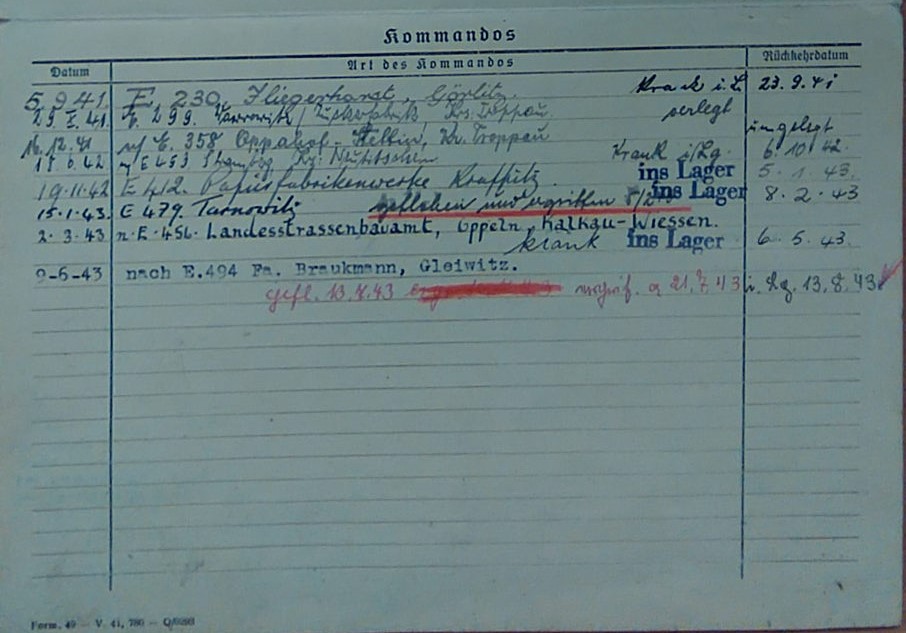 Kommandos
Datum Art des Kommandos Rückkehrdatum
5.9.41. E. 230, Fliegerhorst, Görlitz. Krank i. L. 23.9.41
29.X.41. E. 299. Zuckerfabrik, Krs. Troppau. verlegt
16.12.41 E. 358 Oppahof-Stettin, Kr. Troppau umgelegt
E 453 Krank i/Lg. 6.10.42.
19.11.42 E 412. Papierfabrikenwerke Krappitz. ins Lager 5.1.43.
15.1.43. E 479. Tarnowitz geflohen und ergriffen ins Lager 8.2.43
2.3.43 n. E. 456. Landesstrassenbauamt, Oppeln, Kalkau-Wiessen.
krank ins Lager 6.5.43.
9-6-43 nach E.494 Fa. Braukmann, Gleiwitz.
gefl. 13.7.43 a 21.7.43 i. Lg. 13.8.43.
Form. 49 — V. 41, 780 —